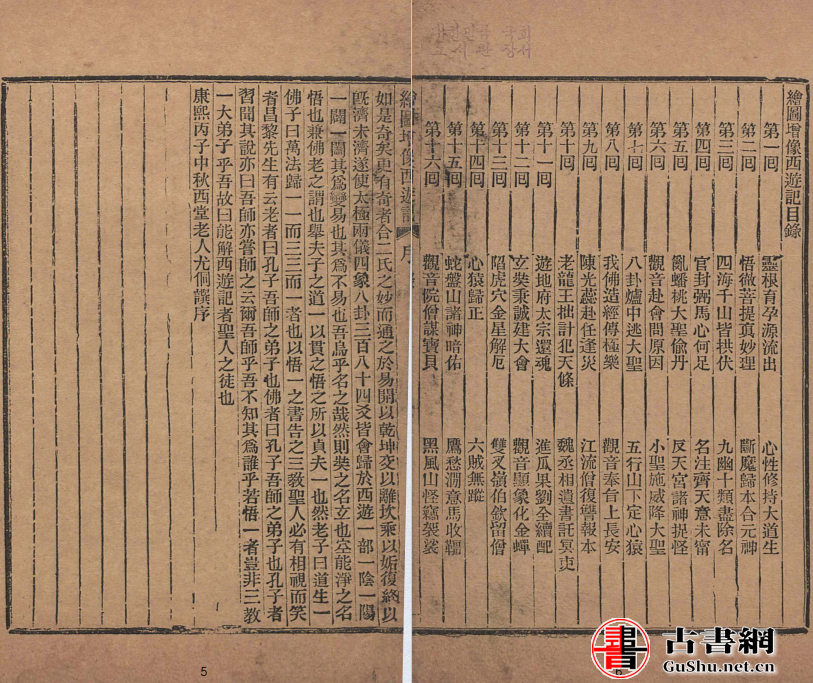 繪圖增像西遊記目錄
第一囘 靈根育孕源流出 心性修持大道生
第二囘 悟微菩提真妙理 斷魔歸本合元神
第三囘 四海千山皆拱伏 九幽十類盡除名
第四囘 官封弼馬心何足 名注齊天意未甯
第五囘 亂蟠桃大聖偷丹 反天宮諸神捉怪
第六囘 觀音赴會問原因 小聖施威降大聖
第七囘 八卦爐中逃大聖 五行山下定心猿
第八囘 我佛造經傳極樂 觀音奉旨上長安
第九囘 陳光蕊赴任逢災 江流僧復讐報本
第十囘 老龍王拙計犯天條 魏丞相遺書託冥吏
第十一囘 遊地府太宗還魂 進瓜果劉全續配
第十二囘 玄奘秉誠建大會 觀音顯象化金蟬
第十三囘 陷虎穴金星解厄 雙叉嶺伯欽留僧
第十四囘 心猿歸正 六賊無蹤
第十五囘 蛇盤山諸神暗佑 鷹愁澗意馬收韁
第十六囘 觀音院僧謀寶貝 黑風山怪竊袈裟
6
繪圖增像西遊記 序
如是奇矣更有奇者合二氏之妙而通之於易開以乾坤交以離坎乘以姤復終以
旣濟未濟遂使太極兩儀四象八卦三百八十四爻皆會歸於西遊一部一陰一陽
一闢一闔其爲變易也其爲不易也吾烏乎名之哉然則奘之名玄也空能淨之名
悟也兼佛老之謂也舉夫子之道一以貫之悟之所以貞夫一也然老子曰道生一
佛子曰萬法歸一一而三三而一者也以悟一之書告之三敎聖人必有相視而笑
者昌黎先生有云老者曰孔子吾師之弟子也佛者曰孔子吾師之弟子也孔子者
習聞其說亦曰吾師亦嘗師之云爾吾師乎吾不知其爲誰乎若悟一者豈非三敎
一大弟子乎吾故曰能解西遊記者聖人之徒也
康熙丙子中秋西堂老人尤侗譔序
5
書
古書網
GuShu.net.cn